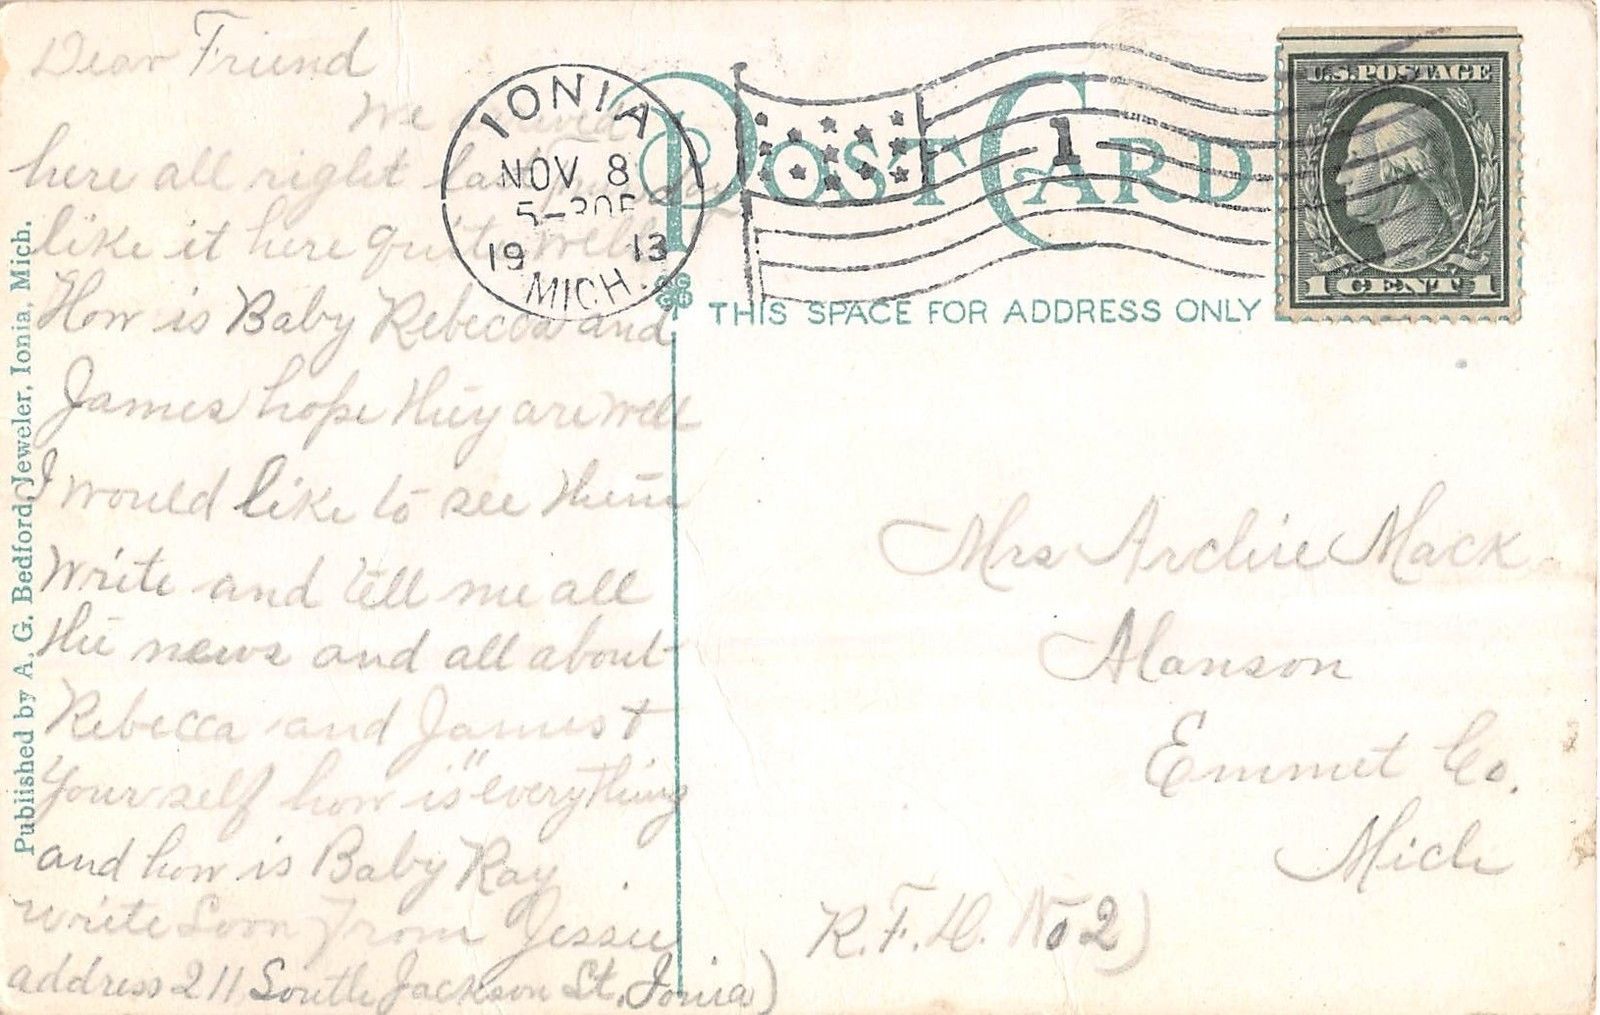 Dear Friend
We
here all right
like it here quite well
How is Baby Rebecca and
James hope they are well
I would like to see them
Write and tell me all
the news and all about
Rebecca and James +
Yourself how is "everything
and how is Baby Ray
write Soon From Jessie
address 211 South Jackson St, Ionia)
Published by A. G. Bedford, Jeweler, Ionia, Mich.
IONIA
NOV 8
5-30P
19 13
MICH.
1
POST CARD
THIS SPACE FOR ADDRESS ONLY
U.S. POSTAGE
1 CENT 1
Mrs Archie Mack
Alanson
Emmet Co.
Mich
R.F.D. No 2)